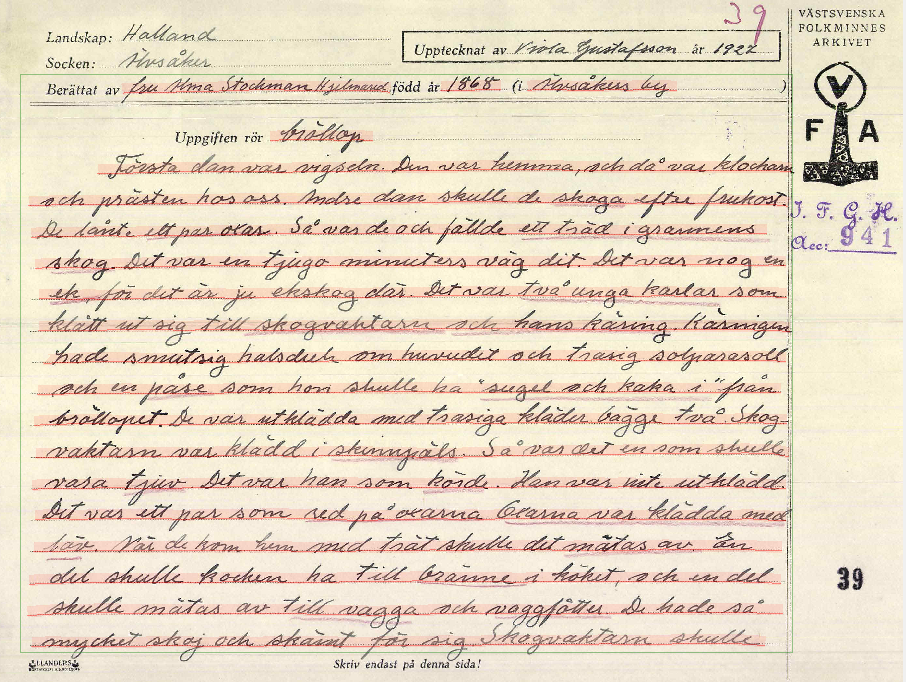 39
VÄSTSVENSKA
FOLKMINNES
ARKIVET
Landskap: Halland
Upptecknat av Viola Gustafsson år 1927
Socken: Älvsåker
Berättat av fru Alma Stockman Hjelmared född år 1868 (i Älvsåkers by )
V
F A
Uppgiften rör bröllop
Första dan var vigseln. Den var hemma, och då var klockarn
och prästen hos oss. Andre dan skulle de skoga efter frukost.
De lånte ett par oxar. Så var de och fällde ett träd i grannens
skog. Det var en tjugo minuters väg dit. Det var nog en
ek, för det är ju ekskog där. Det var två unga karlar som
klätt ut sig till skogvaktarn och hans käring. Käringen
hade smutsig halsduk om huvudet och trasig solparasoll
och en påse som hon skulle ha "sugel och kaka i" från
bröllopet. De var utklädda med trasiga kläder bägge två. Skog
vaktarn var klädd i skinnpäls. Så var det en som skulle
vara tjuv. Det var han som körde. Han var inte utklädd.
Det var ett par som red på oxarna Oxarna var klädda med
löv. När de kom hem med trät skulle det mätas av. En
del skulle kocken ha till bränne i köket, och en del
skulle mätas av till vagga och vaggfötter. De hade så
mycket skoj och skämt för sig Skogvaktarn skulle
I. F. G. H.
Acc: 941
39
Skriv endast på denna sida!